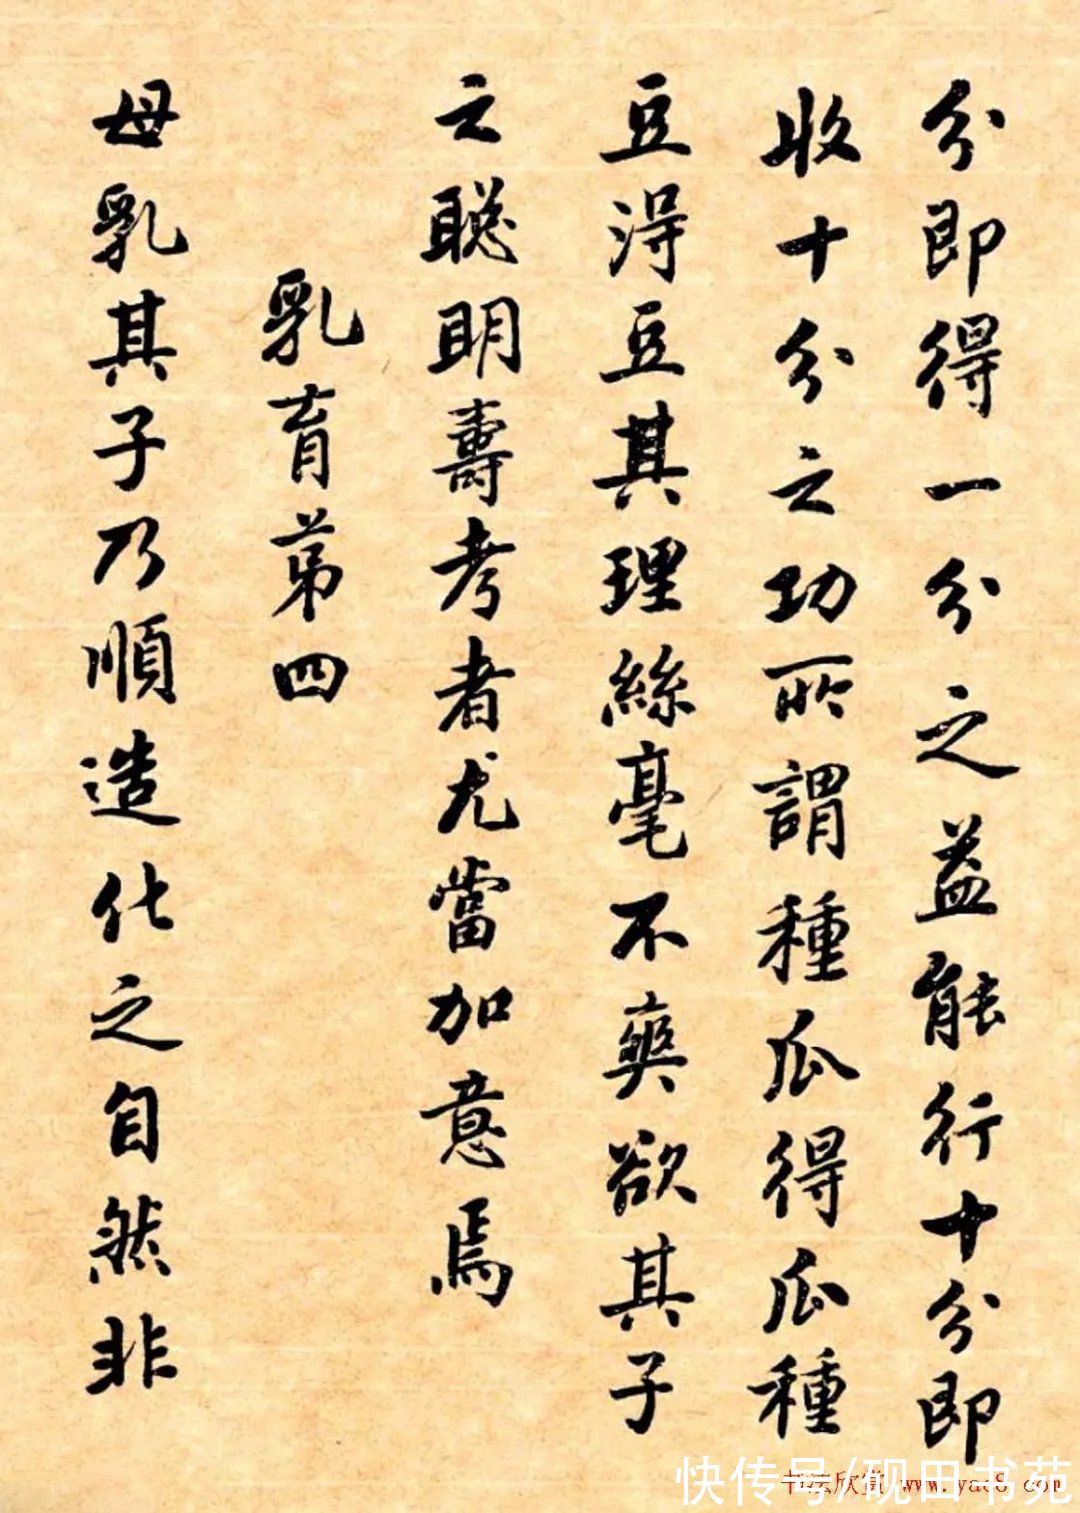 分即得一分之益能行十分即
收十分之功所謂種瓜得瓜種
豆得豆其理絲毫不爽欲其子
之聰明壽考者尤當加意焉
乳育第四
母乳其子乃順造化之自然非
快传号/砚田书苑
书法欣赏 www.yac8.com